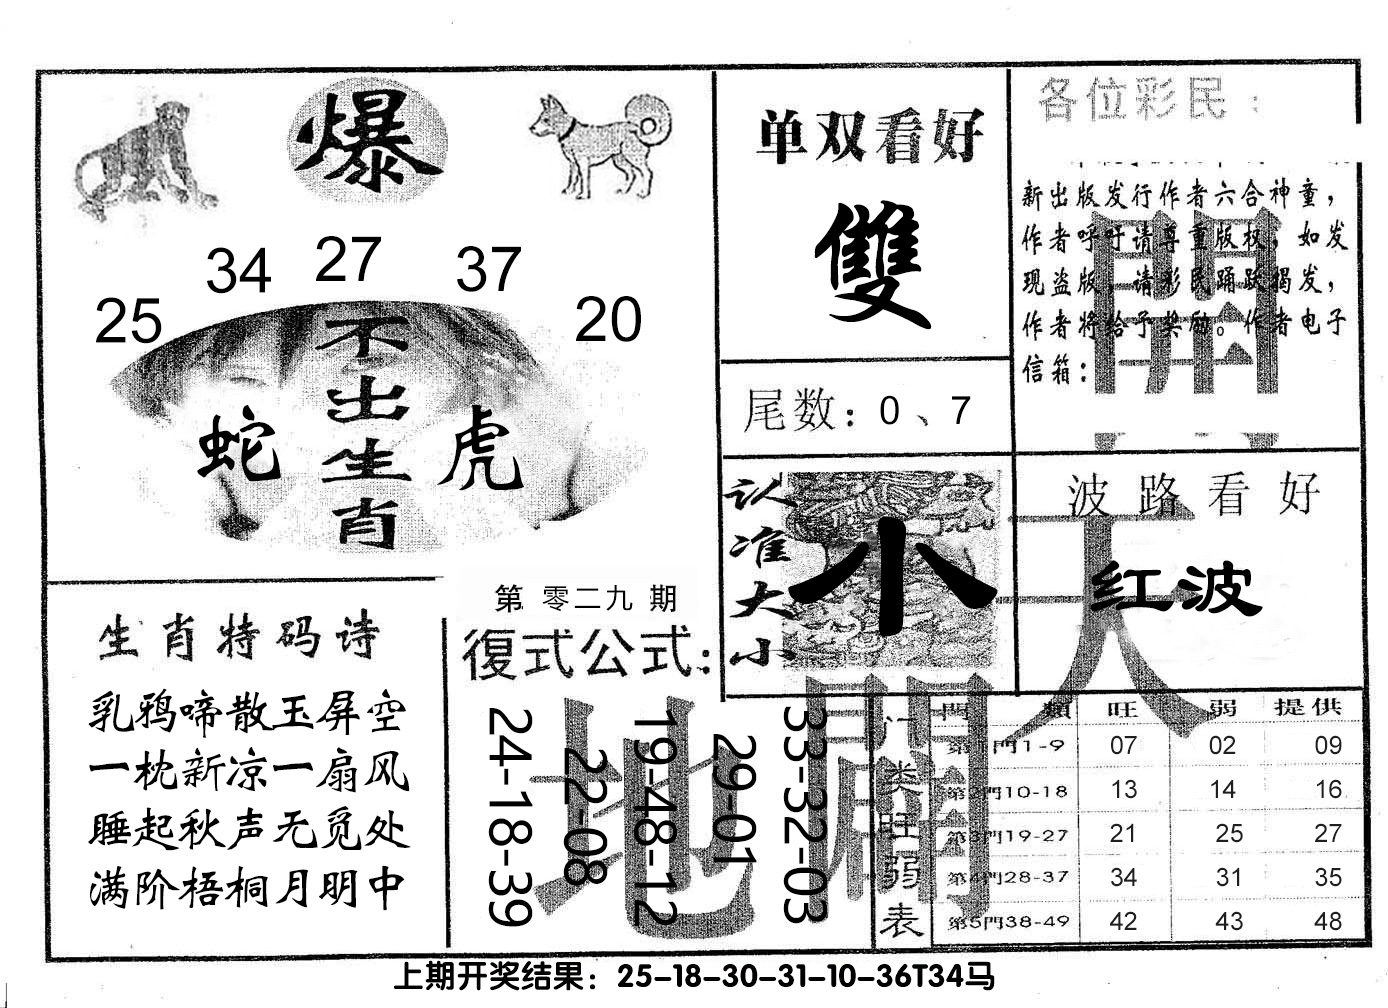 爆
25
34
27
37
20
不出生肖
蛇
虎
单双看好
雙
尾数：0、7
各位彩民：
新出版发行作者六合神童，
作者呼吁请尊重版权，如发
现盗版，请彩民踊跃揭发，
作者将给予奖励。作者电子
信箱：
認准大小
小
波路看好
红波
生肖特码诗
乳鸦啼散玉屏空
一枕新凉一扇风
睡起秋声无觅处
满阶梧桐月明中
第 零二九 期
復式公式：
24-18-39
22-08
19-48-12
29-01
33-32-03
天
地
門类旺弱表
門 類 旺 弱 提供
第1門1-9 07 02 09
第2門10-18 13 14 16
第3門19-27 21 25 27
第4門28-37 34 31 35
第5門38-49 42 43 48
上期开奖结果：25-18-30-31-10-36T34马